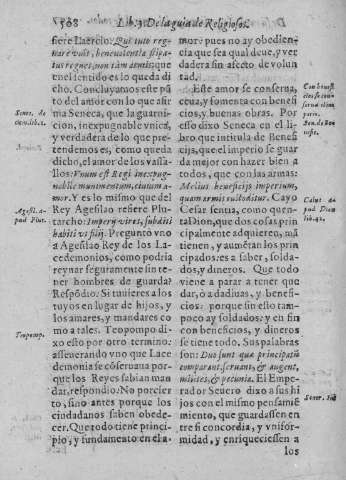 508 Lib. 3. De la guia de Religiosos.
fiere Laercio: Qui tuto regnare
vult, benevolentia stipatus
regnet, non tàm armis; que
en el sentido es lo que da dicho.
Concluyamos este pũto
del amor con lo que afirma
Seneca, que la guarnicion,
inexpugnable vnica,
y verdadera de lo que pretendemos
es, como queda
dicho, el amor de los vassallos:
Vnum est Regi inexpugnabile
munimentum, ciuium amor.
Y es lo mismo que del
Rey Agesilao refiere Plutarcho:
Imperij vires, subditi
habiti vt filij. Pregunto vno
a Agesilao Rey de los Lacedemonios,
como podria
reynar seguramente sin tener
hombres de guarda?
Respõdio. Si tuuieres a los
tuyos en lugar de hijos, y
los amares, y mandares como
a tales. Teopompo dixo
esto por otro termino:
asseuerando vno que Lacedemonia
se cõseruaua porque
los Reyes sabian mandar,
respondio. No por cierto,
sino antes porque los
ciudadanos saben obedecer.
Que todo tiene principio,
y fundamento en el a-
Senec. de
clem. lib. 1.
Agesil. apud
Plut.
Teopomp.
mor: pues no ay obediencia
que sea qual deue, y verdadera
sin afecto de voluntad.
Este amor se conserua,
ceua, y fomenta con beneficios,
y buenas obras. Por
esso dixo Seneca en el libro
que intitula de Beneficijs,
que el imperio se guarda
mejor con hazer bien a
todos, que con las armas:
Melius beneficijs imperium,
quam armis custoditur. Cayo
Cesar sentia, como cuenta
Dion, que dos cosas principalmente
adquieren, mãtienen,
y aumẽtan los principados:
es a saber, soldados,
y dineros. Que todo
viene a parar a tener que
dar, o a dadiuas, y beneficios:
porque sin esso tampoco
ay soldados: y en fin
con beneficios, y dineros
se tiene todo. Sus palabras
son: Duo sunt quæ principatũ
comparant, seruant, & augent,
milites, & pecunia. El Emperador
Seuero dixo a sus hijos
con el mismo pensamiento,
que guardassen entre
si concordia, y vniformidad,
y enriqueciessen a
los
Con benefi
cios se conserua
el imperio.
Sen. de Benef.
Dion
lib. 42.